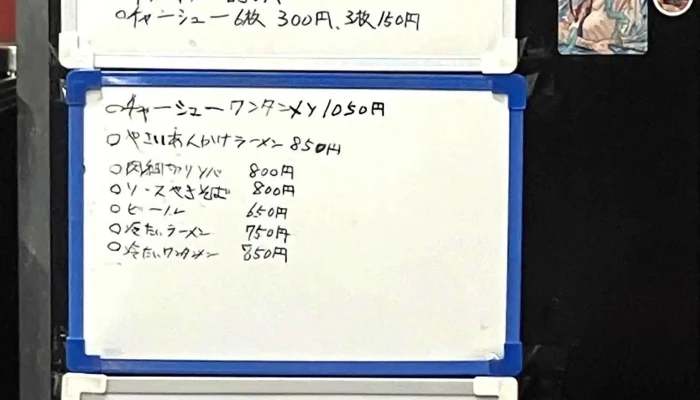 ○チャーシュー6枚 300円、3枚150円
○チャーシューワンタンメン1050円
○やさいあんかけラーメン 850円
○肉細切りソバ 800円
○ソースやきそば 800円
○ビール 650円
○冷たいラーメン 750円
○冷たいワンタンメン 850円